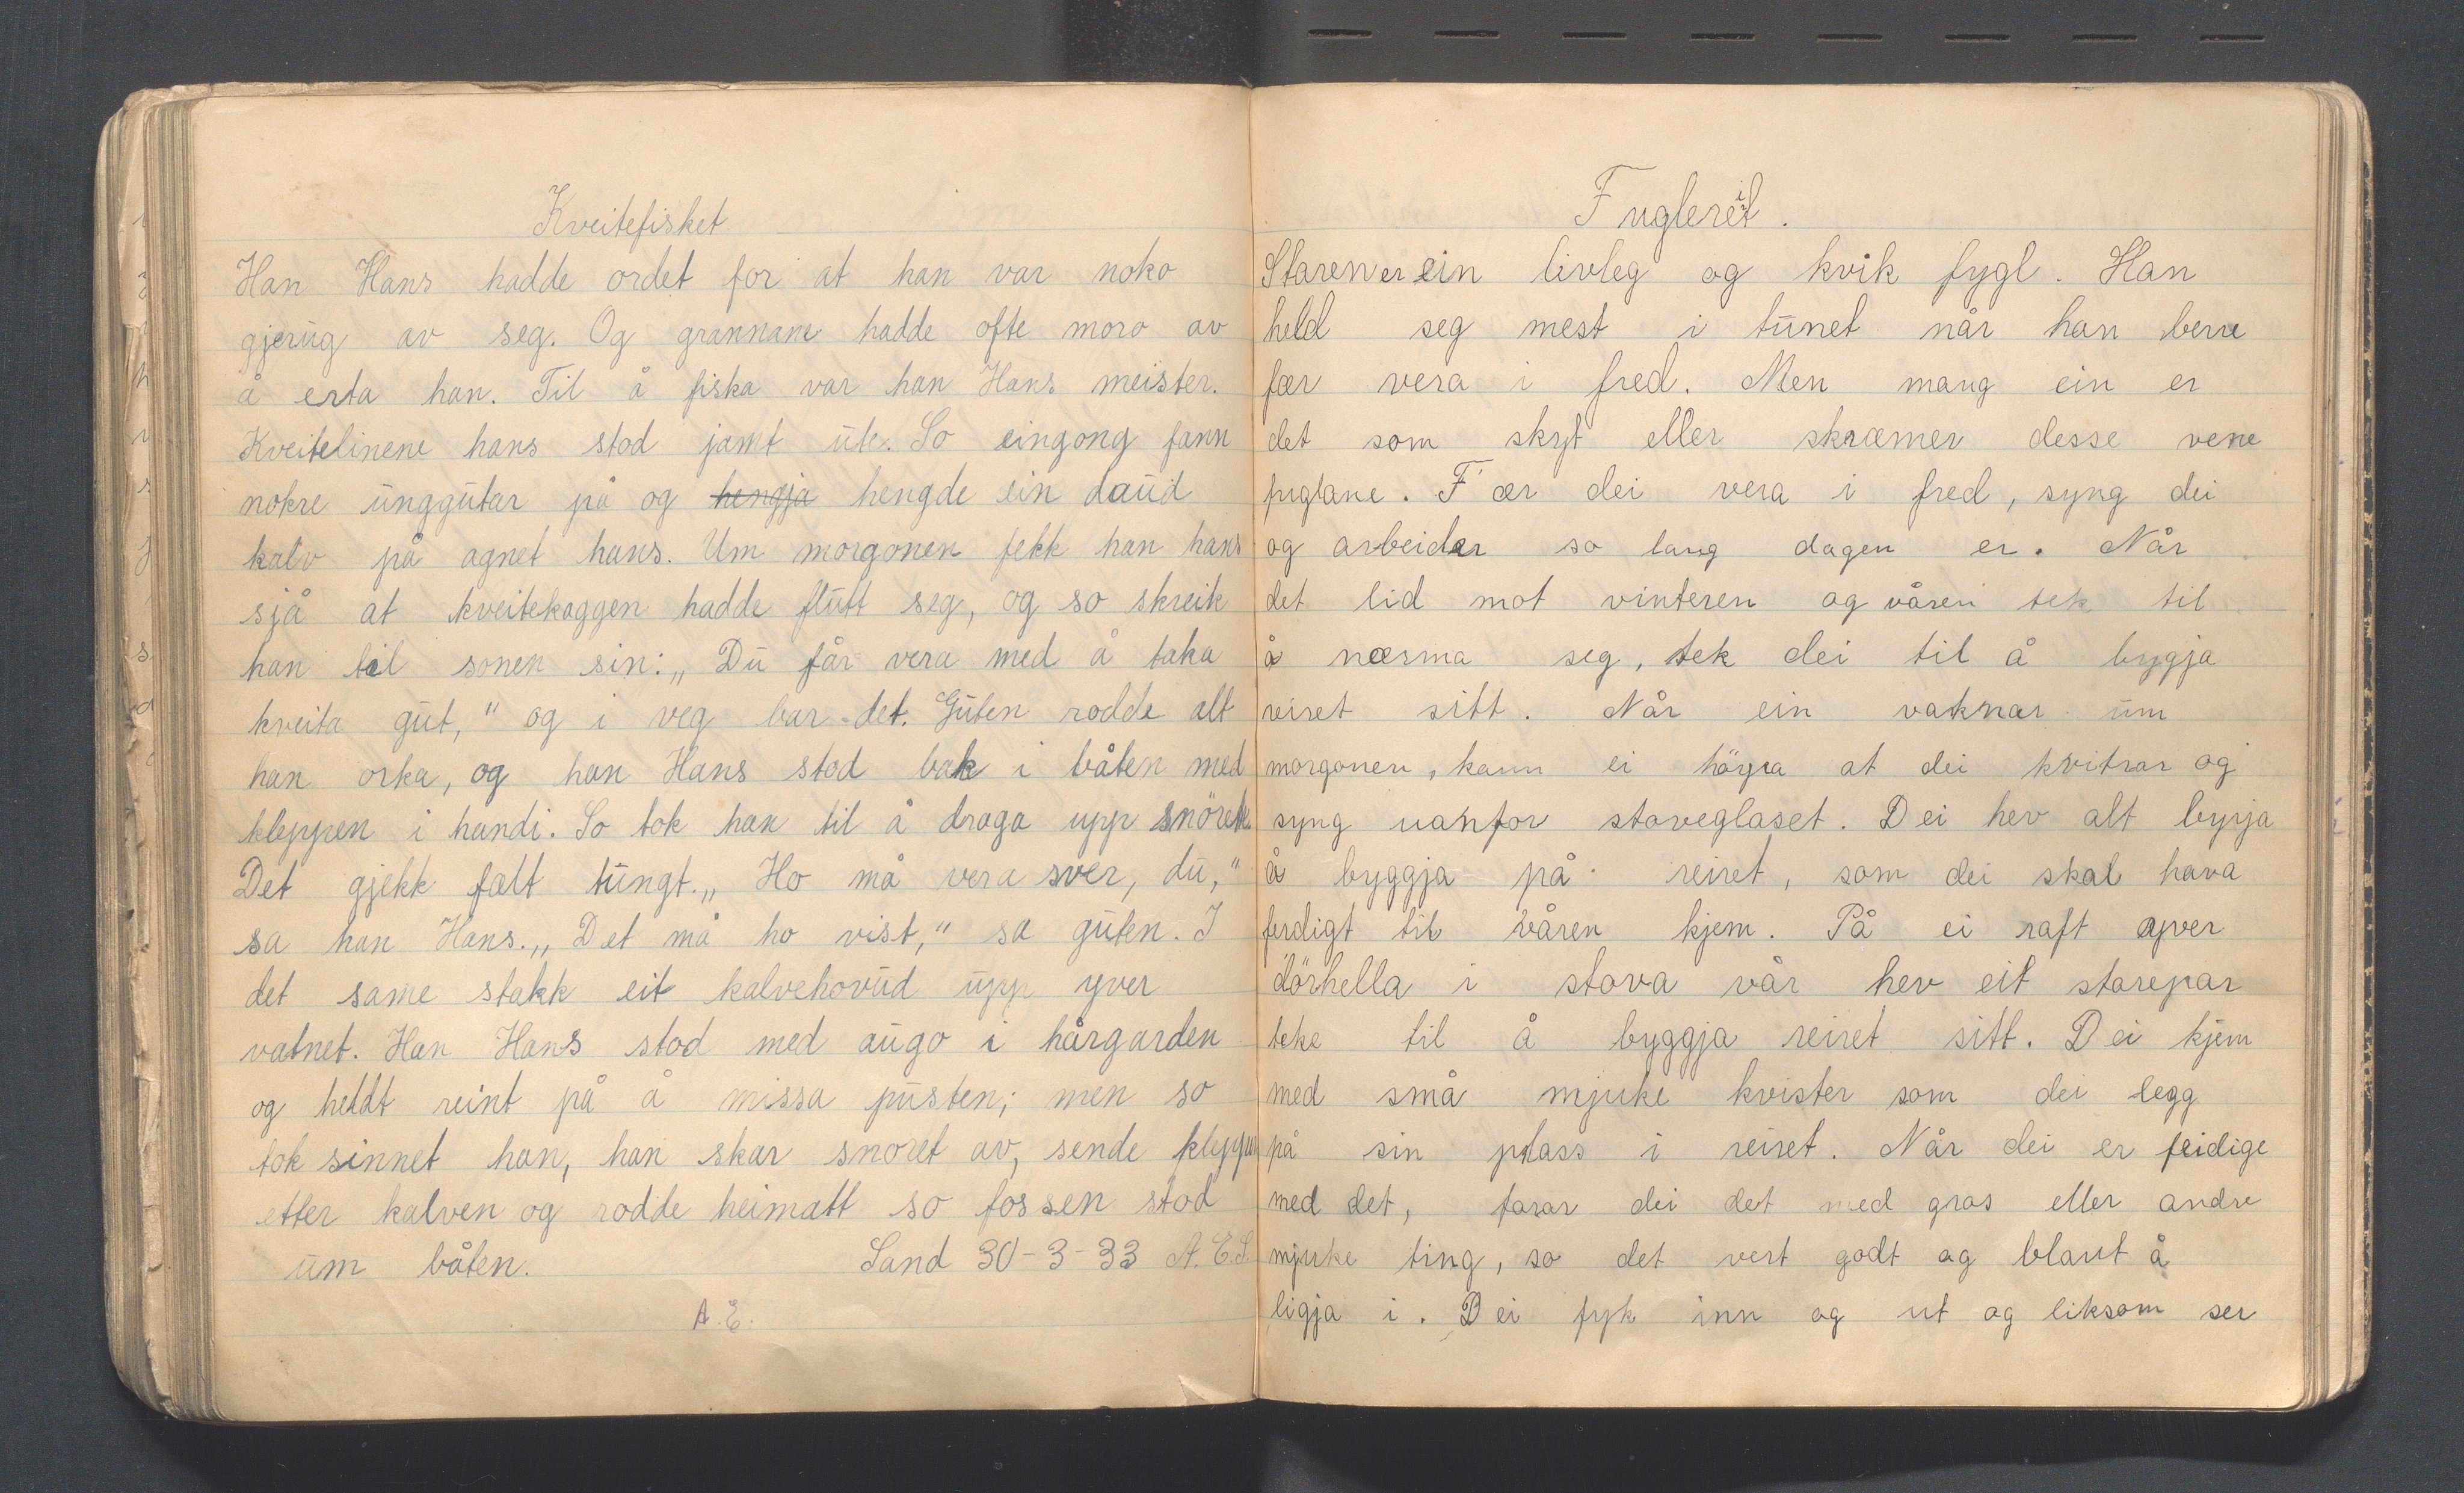 Kveitefisket
Han Hans hadde ordet for at han var noko
gjerug av seg. Og grannane hadde ofte moro av
å erta han. Til å fiska var han Hans meister.
Kveitelinene hans stod jamt ute. So eingong fann
nokre unggutar på og hengja hengde ein daud
kalv på agnet hans. Um morgonen fekk han hans
sjå at kveitekaggen hadde flutt seg, og so skreik
han til sonen sin: „Du får vera med å taka
kveita gut," og i veg bar det. Guten rodde alt
han orka, og han Hans stod bak i båten med
kleppen i handi. So tok han til å draga upp snöret.
Det gjekk fælt tungt. „Ho må vera svær, du,"
sa han Hans. „Det må ho vist," sa guten. I
det same stakk eit kalvehovud upp yver
vatnet. Han Hans stod med augo i hårgarden
og heldt reint på å missa pusten; men so
tok sinnet han, han skar snoret av, sende kleppen
etter kalven og rodde heimatt so fossen stod
um båten. Sand 30-3-33 A.E.S.
A.E.
Fuglereit.
Staren er ein livleg og kvik fygl. Han
held seg mest i tunet når han berre
fær vera i fred. Men mang ein er
det som skyt eller skræmer desse vene
fuglane. Fær dei vera i fred, syng dei
og arbeider so lang dagen er. Når
det lid mot vinteren og våren tek til
å nærma seg, tek dei til å bygja
reiret sitt. Når ein vaknar um
morgonen, kann ei höyra at dei kvitrar og
syng uanfor staveglaset. Dei hev alt byrja
å byggja på reiret, som dei skal hava
ferdigt til våren kjem. På ei raft yver
dörhella i stova vår hev eit starepar
teke til å byggja reiret sitt. Dei kjem
med små mjuke kvister som dei legg
på sin plass i reiret. Når dei er feidige
med det, forar dei det med gras eller andre
mjuke ting, so det vert godt og blaut å
ligja i. Dei fyk inn og ut og liksom ser